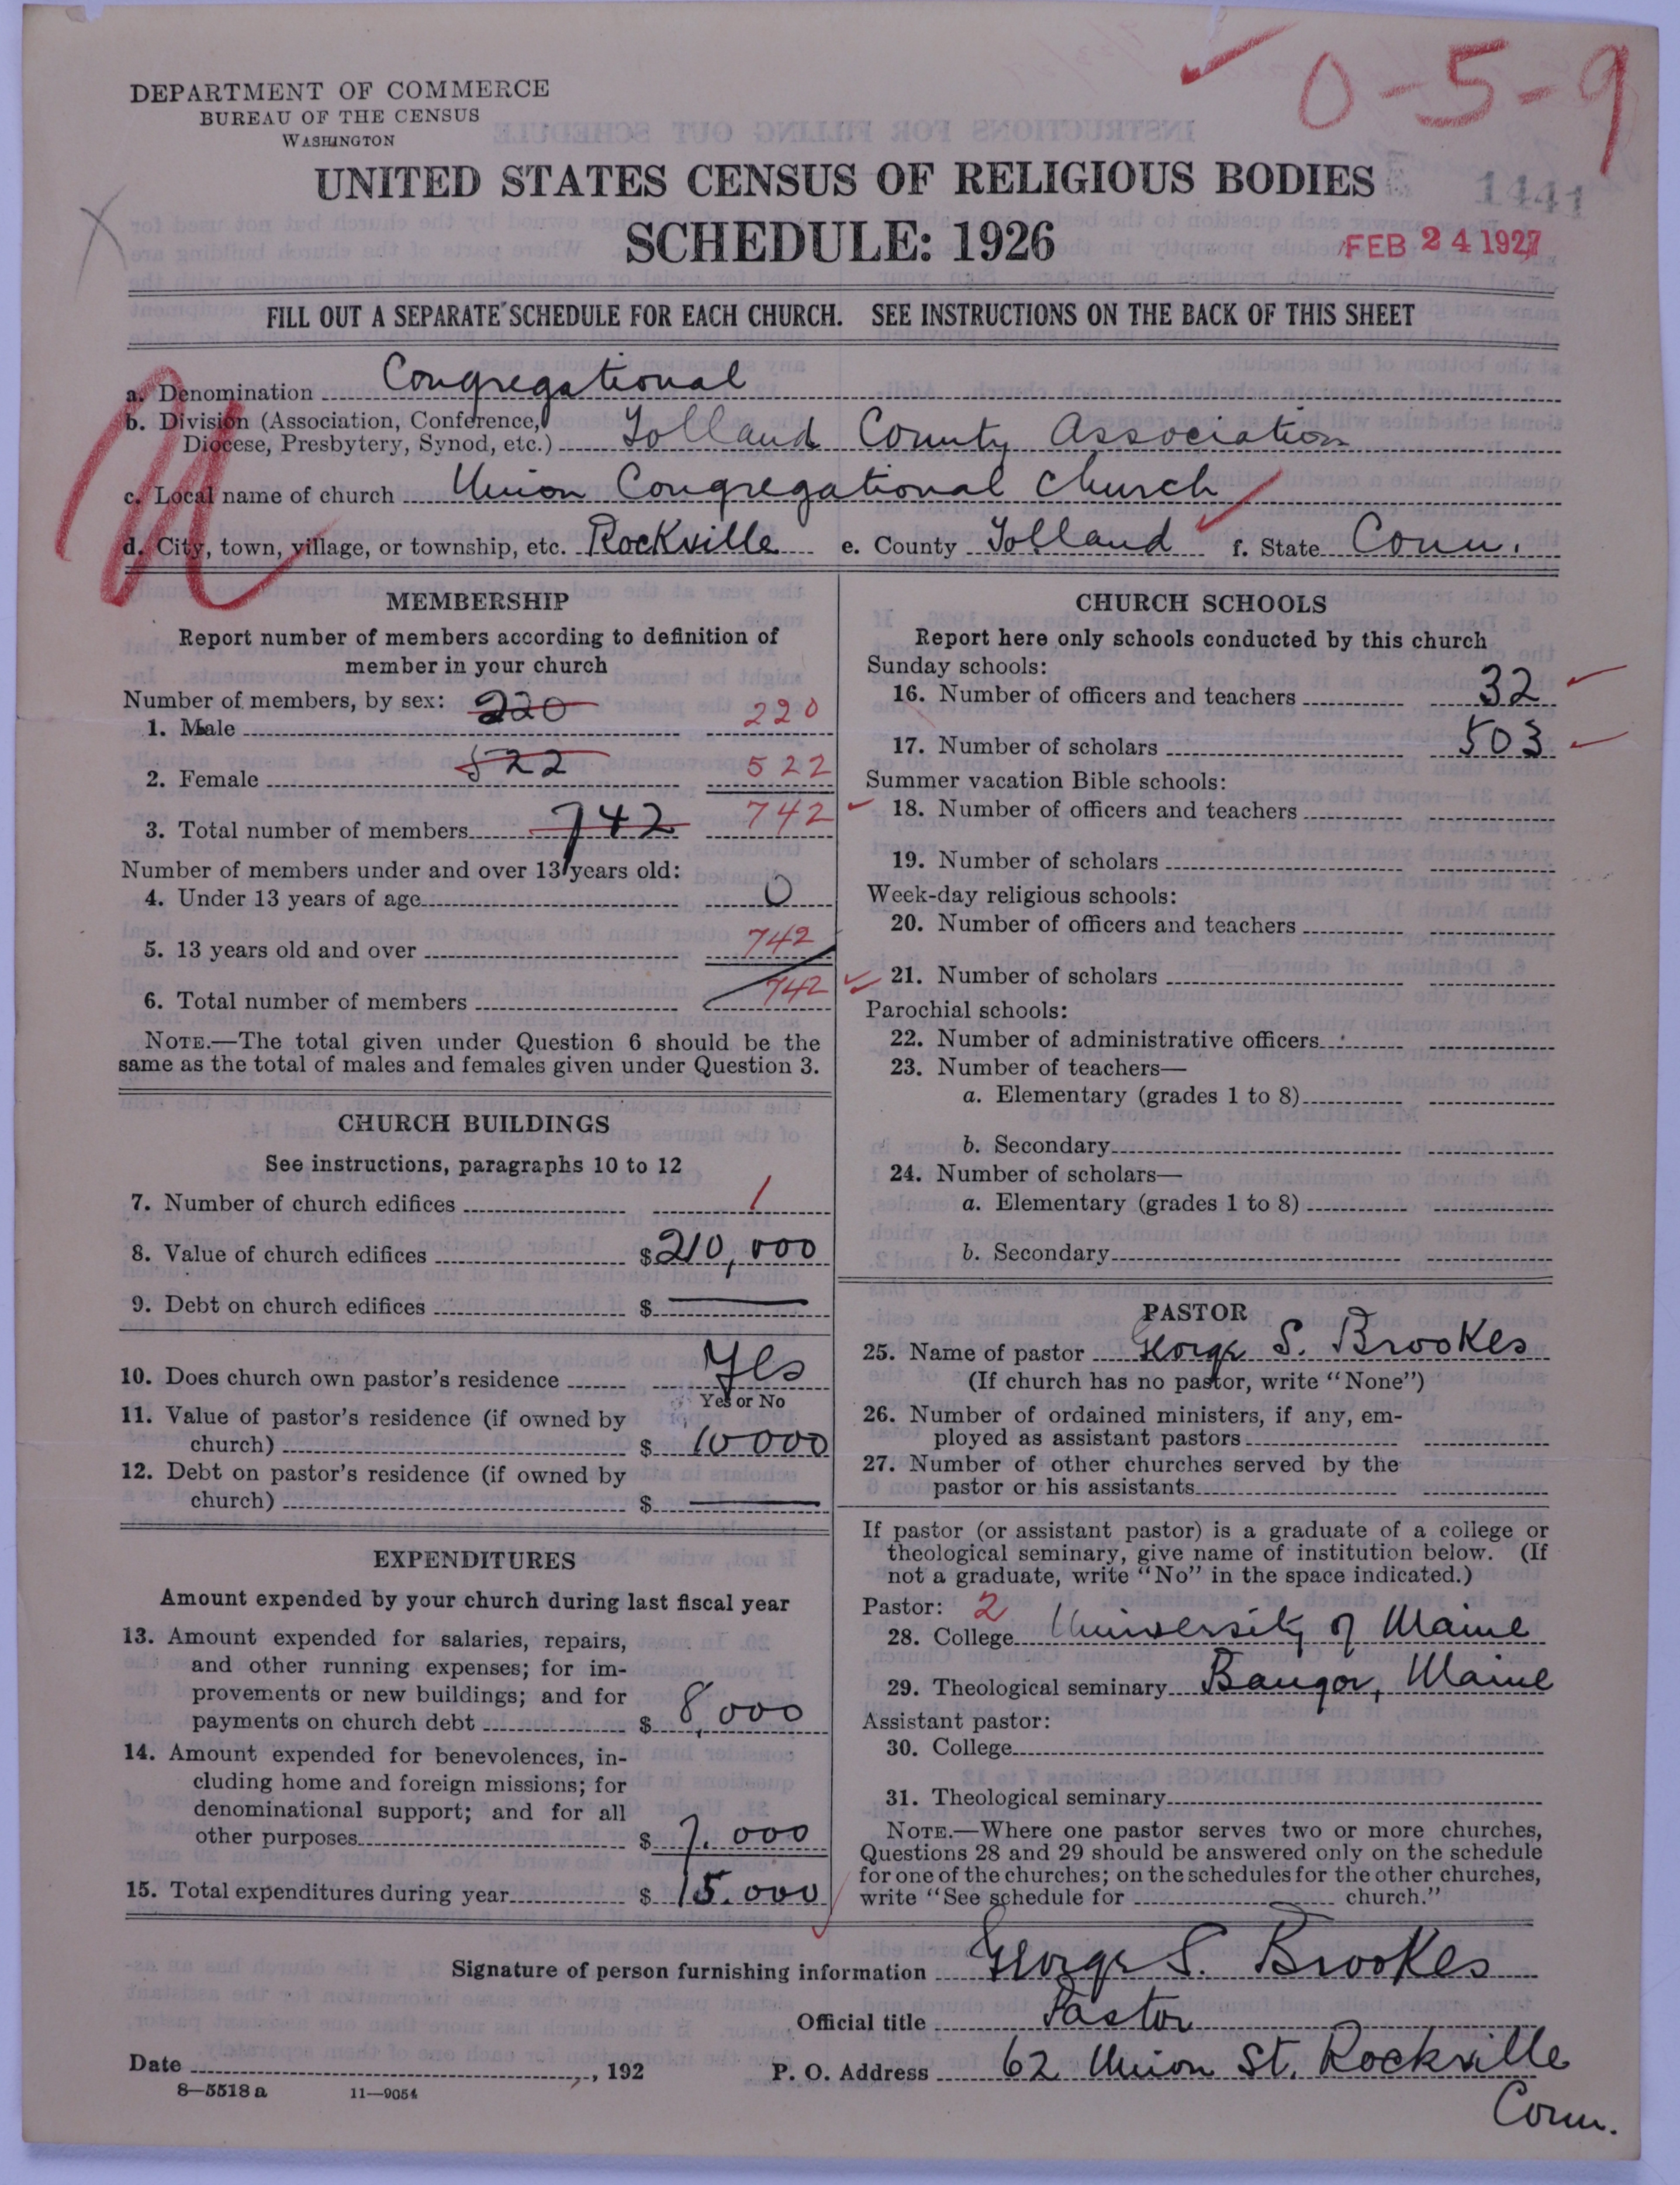 0-5-9
DEPARTMENT OF COMMERCE
BUREAU OF THE CENSUS
WASHINGTON
UNITED STATES CENSUS OF RELIGIOUS BODIES
1441
SCHEDULE: 1926
FEB 24 1927
FILL OUT A SEPARATE SCHEDULE FOR EACH CHURCH. SEE INSTRUCTIONS ON THE BACK OF THIS SHEET
a. Denomination Congregational
b. Division (Association, Conference,
Diocese, Presbytery, Synod, etc.) Tolland County Association
c. Local name of church Union Congregational Church
d. City, town, village, or township, etc. Rockville e. County Tolland f. State Conn.
MEMBERSHIP
Report number of members according to definition of
member in your church
Number of members, by sex: 220
1. Male 220
2. Female 522 522
3. Total number of members 742 742
Number of members under and over 13 years old:
4. Under 13 years of age 0
5. 13 years old and over 742
6. Total number of members 742
NOTE.—The total given under Question 6 should be the
same as the total of males and females given under Question 3.
CHURCH BUILDINGS
See instructions, paragraphs 10 to 12
7. Number of church edifices 1
8. Value of church edifices $210,000
9. Debt on church edifices $ —
10. Does church own pastor's residence Yes
Yes or No
11. Value of pastor's residence (if owned by
church) $ 10000
12. Debt on pastor's residence (if owned by
church) $ —
EXPENDITURES
Amount expended by your church during last fiscal year
13. Amount expended for salaries, repairs,
and other running expenses; for im-
provements or new buildings; and for
payments on church debt $ 8,000
14. Amount expended for benevolences, in-
cluding home and foreign missions; for
denominational support; and for all
other purposes $ 7.000
15. Total expenditures during year $ 15.000
CHURCH SCHOOLS
Report here only schools conducted by this church
Sunday schools:
16. Number of officers and teachers 32
17. Number of scholars 503
Summer vacation Bible schools:
18. Number of officers and teachers
19. Number of scholars
Week-day religious schools:
20. Number of officers and teachers
21. Number of scholars
Parochial schools:
22. Number of administrative officers
23. Number of teachers—
a. Elementary (grades 1 to 8)
b. Secondary
24. Number of scholars—
a. Elementary (grades 1 to 8)
b. Secondary
PASTOR
25. Name of pastor George S. Brookes
(If church has no pastor, write "None")
26. Number of ordained ministers, if any, em-
ployed as assistant pastors
27. Number of other churches served by the
pastor or his assistants
If pastor (or assistant pastor) is a graduate of a college or
theological seminary, give name of institution below. (If
not a graduate, write "No" in the space indicated.)
Pastor: 2
28. College University of Maine
29. Theological seminary Bangor, Maine
Assistant pastor:
30. College
31. Theological seminary
NOTE.—Where one pastor serves two or more churches,
Questions 28 and 29 should be answered only on the schedule
for one of the churches; on the schedules for the other churches,
write "See schedule for church."
Signature of person furnishing information George S. Brookes
Official title Pastor
Date , 192 P. O. Address 62 Union St. Rockville
Conn.
8—5518 a 11—9054